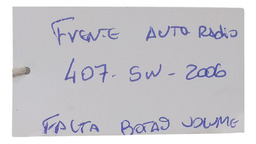 FRENTE AUTO RADIO
407 - SW - 2006
FALTA BOTAO VOLUME